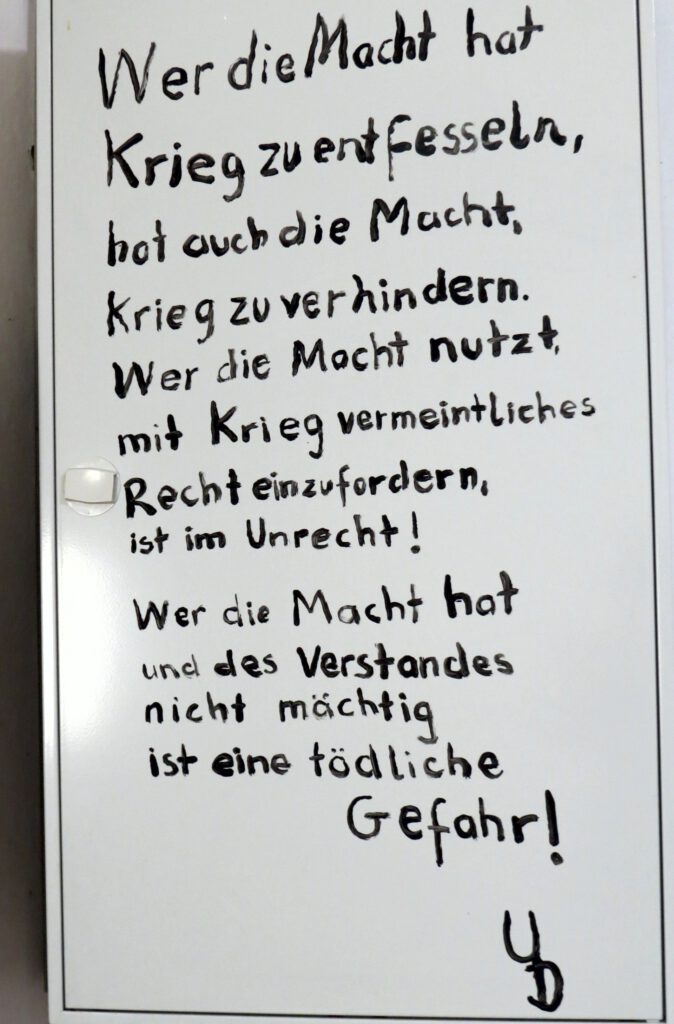 Wer die Macht hat
Krieg zu entfesseln,
hat auch die Macht,
Krieg zu verhindern.
Wer die Macht nutzt,
mit Krieg vermeintliches
Recht einzufordern,
ist im Unrecht!
Wer die Macht hat
und des Verstandes
nicht mächtig
ist eine tödliche
Gefahr!
UD